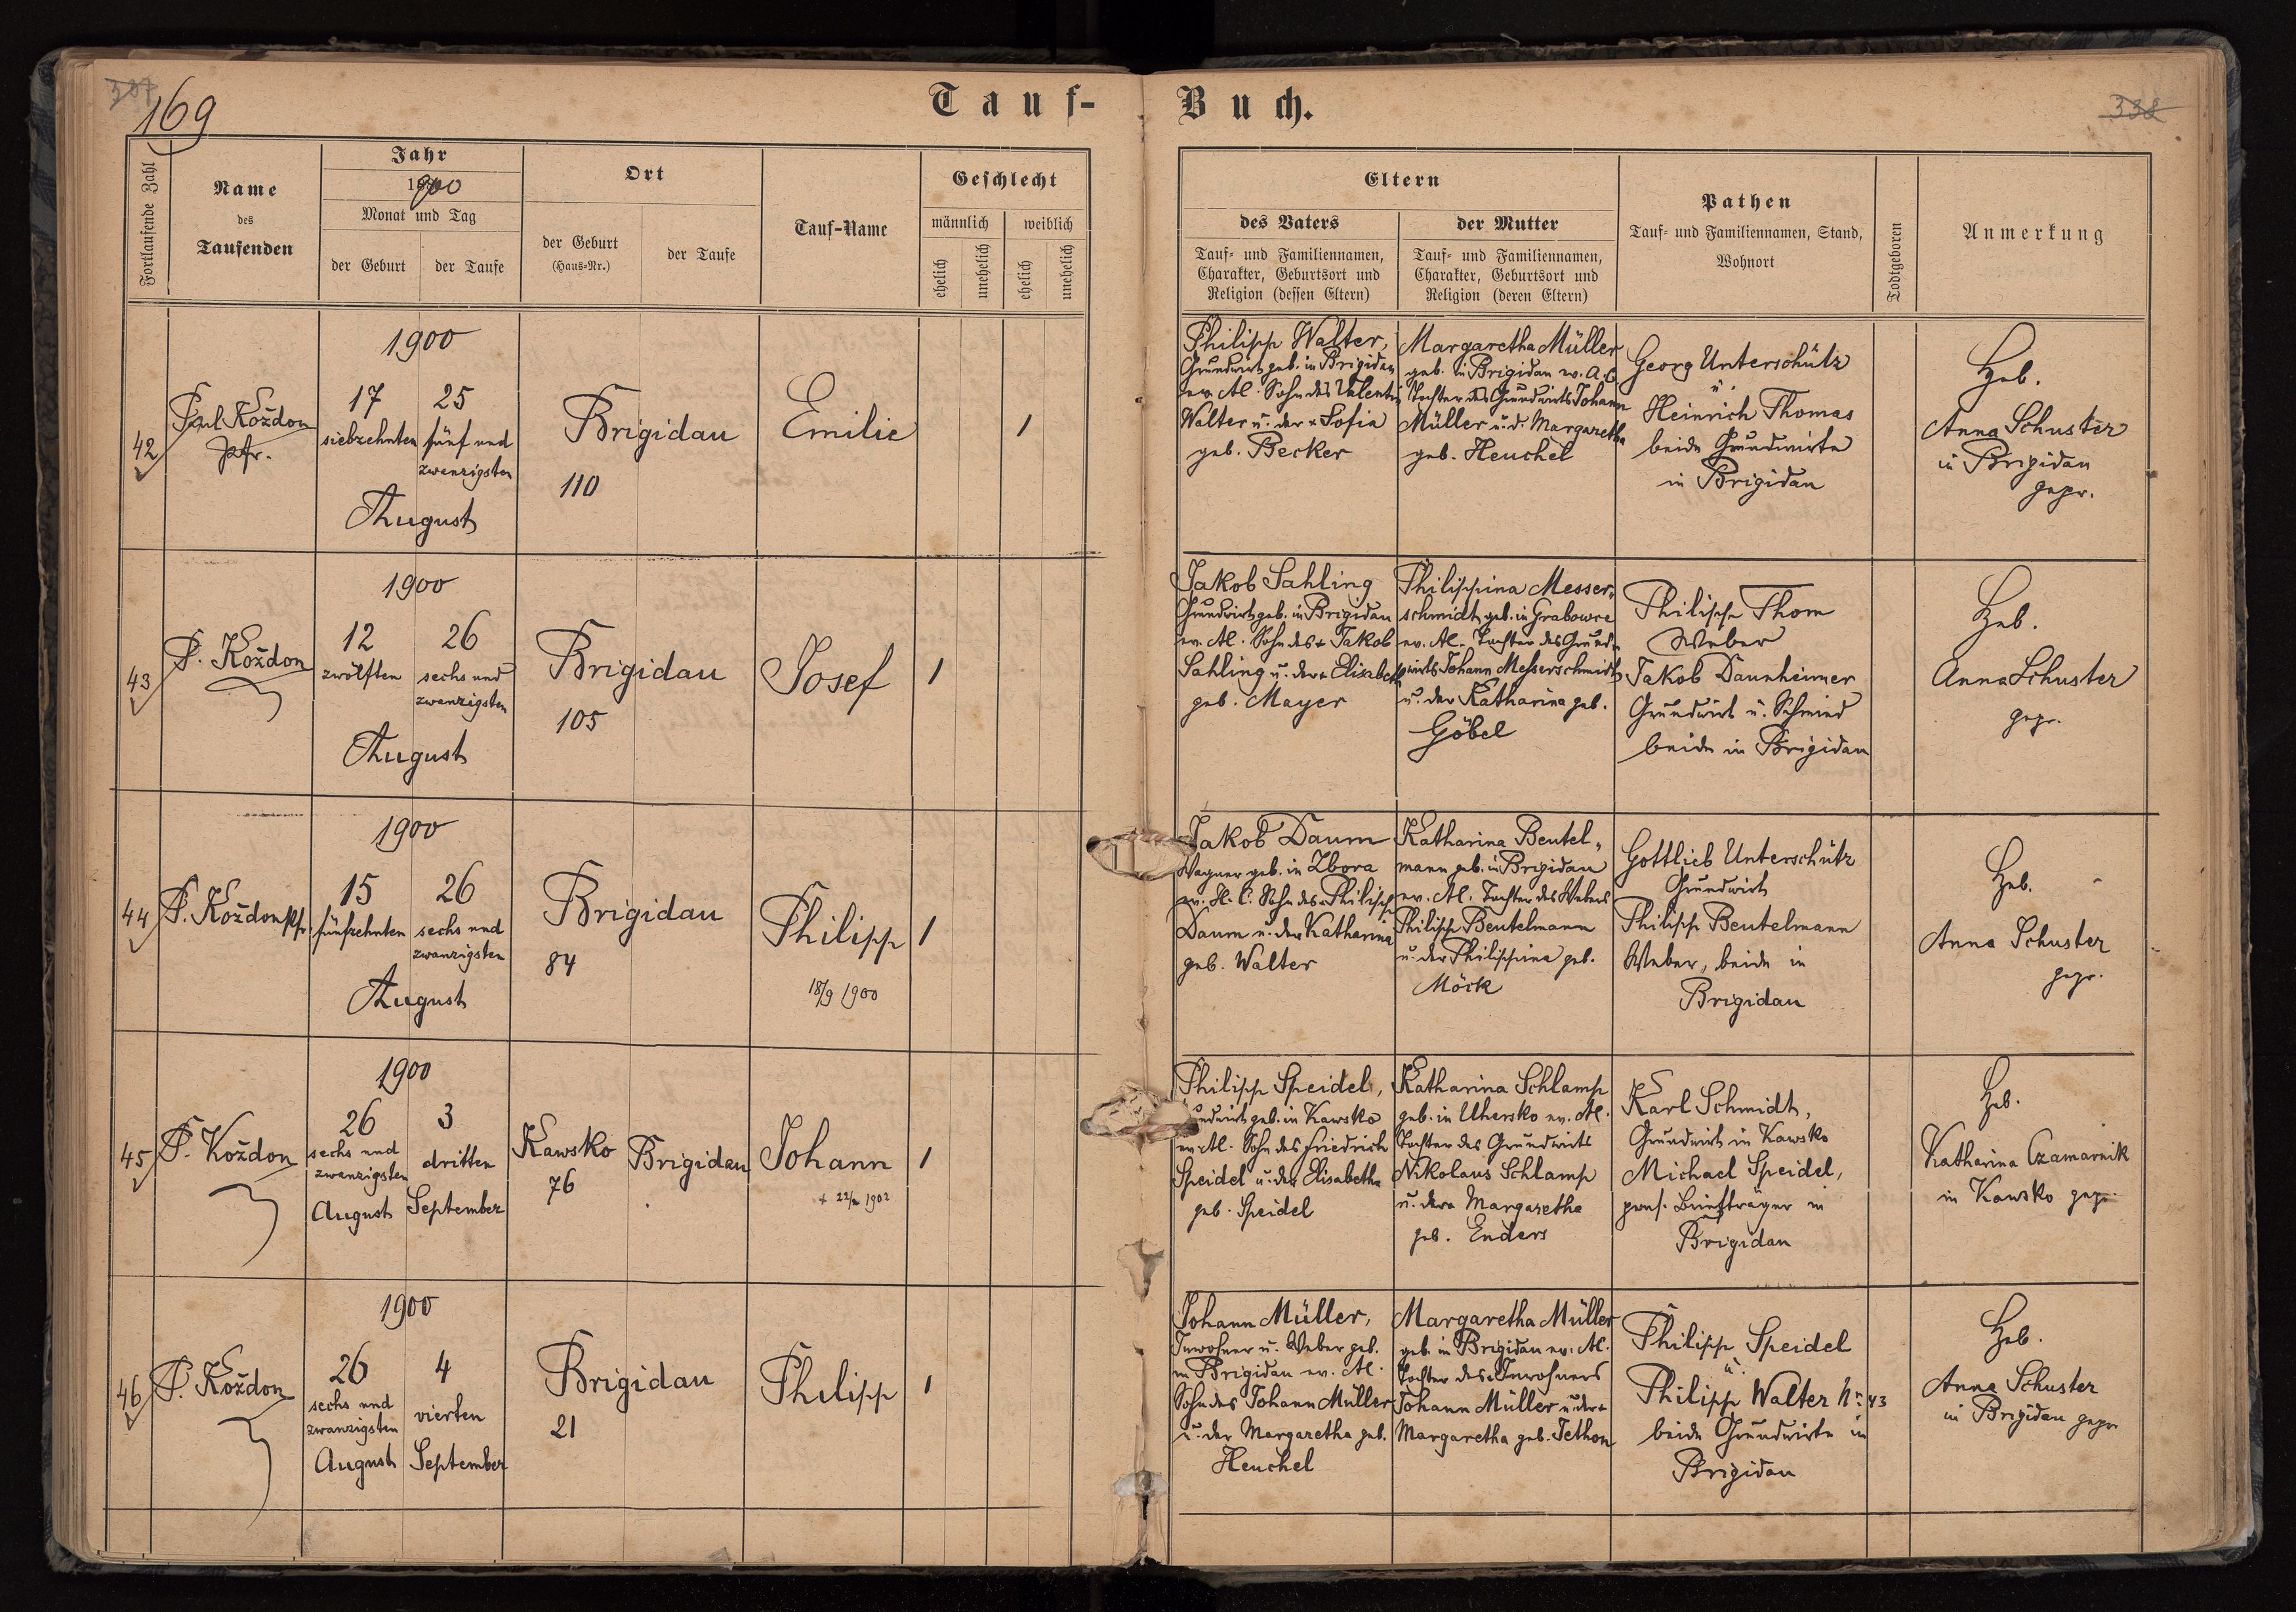 337
169
Tauf-
Buch.
338
Fortlaufende Zahl
Name
des
Taufenden
Jahr
1900
Monat und Tag
der Geburt
der Taufe
Ort
der Geburt
(Haus-Nr.)
der Taufe
Tauf-Name
Geschlecht
männlich
weiblich
ehelich
unehelich
ehelich
unehelich
Eltern
des Vaters
Tauf- und Familiennamen,
Charakter, Geburtsort und
Religion (dessen Eltern)
der Mutter
Tauf- und Familiennamen,
Charakter, Geburtsort und
Religion (deren Eltern)
Pathen
Tauf- und Familiennamen, Stand,
Wohnort
Todtgeboren
Anmerkung
42
Paul Koždon
Pfr.
1900
17
siebzehnten
25
fünf und
zwanzigsten
August
Brigidau
110
Emilie
1
Philipp Walter,
Grundwirt geb. in Brigidau
ev. A.C. Sohn des Valentin
Walter u. der + Sofia
geb. Becker
Margaretha Müller
geb. in Brigidau ev. A.C.
Tochter des Grundwirts Johann
Müller u. d. Margaretha
geb. Heuchel
Georg Unterschütz
u.
Heinrich Thomas
beide Grundwirte
in Brigidau
Heb.
Anna Schuster
in Brigidau
gepr.
43
P. Koždon
1900
12
zwölften
26
sechs und
zwanzigsten
August
Brigidau
105
Josef
1
Jakob Sahling
Grundwirt geb. in Brigidau
ev. A.C. Sohn des + Jakob
Sahling u. der + Elisabeth
geb. Mayer
Philippina Messer„
schmidt geb. in Grabowce
ev. A.C. Tochter des Grund„
wirts Johann Messerschmidt
u. der Katharina geb.
Göbel
Philipp Thom
Weber
Jakob Daunheimer
Grundwirt u. Schmied
beide in Brigidau
Heb.
Anna Schuster
gepr.
44
P. Koždon Pfr.
1900
15
fünfzehnten
26
sechs und
zwanzigsten
August
Brigidau
84
Philipp
18/9 1900
1
Jakob Daum
Wagner geb. in Zbora
ev. H.C. Sohn des + Philipp
Daum u. der Katharina
geb. Walter
Katharina Beutel„
mann geb. in Brigidau
ev. A.C. Tochter des Webers
Philipp Beutelmann
u. der Philippina geb.
Möck
Gottlieb Unterschütz
Grundwirt
Philipp Beutelmann
Weber, beide in
Brigidau
Heb.
Anna Schuster
gepr.
45
P. Koždon
1900
26
sechs und
zwanzigsten
August
3
dritten
September
Kawsko
76
Brigidau
Johann
1902
1
Philipp Speidel,
Grundwirt geb. in Kawsko
ev. A.C. Sohn des Friedrich
Speidel u. der Elisabetha
geb. Speidel
Katharina Schlamp
geb. in Uhersko ev. A.C.
Tochter des Grundwirts
Nikolaus Schlamp
u. der + Margaretha
geb. Enders
Karl Schmidt,
Grundwirt in Kawsko
Michael Speidel,
pens. Briefträger in
Brigidau
Heb.
Katharina Czamarnik
in Kawsko gepr.
46
P. Koždon
1900
26
sechs und
zwanzigsten
August
4
vierten
September
Brigidau
21
Philipp
1
Johann Müller,
Inwohner u. Weber geb.
in Brigidau ev. A.C.
Sohn des Johann Müller
u. der Margaretha geb.
Heuchel
Margaretha Müller
geb. in Brigidau ev. A.C.
Tochter des + Inwohners
Johann Müller u. der +
Margaretha geb. Tethon
Philipp Speidel
u.
Philipp Walter Nr. 43
beide Grundwirte in
Brigidau
Heb.
Anna Schuster
in Brigidau gepr.